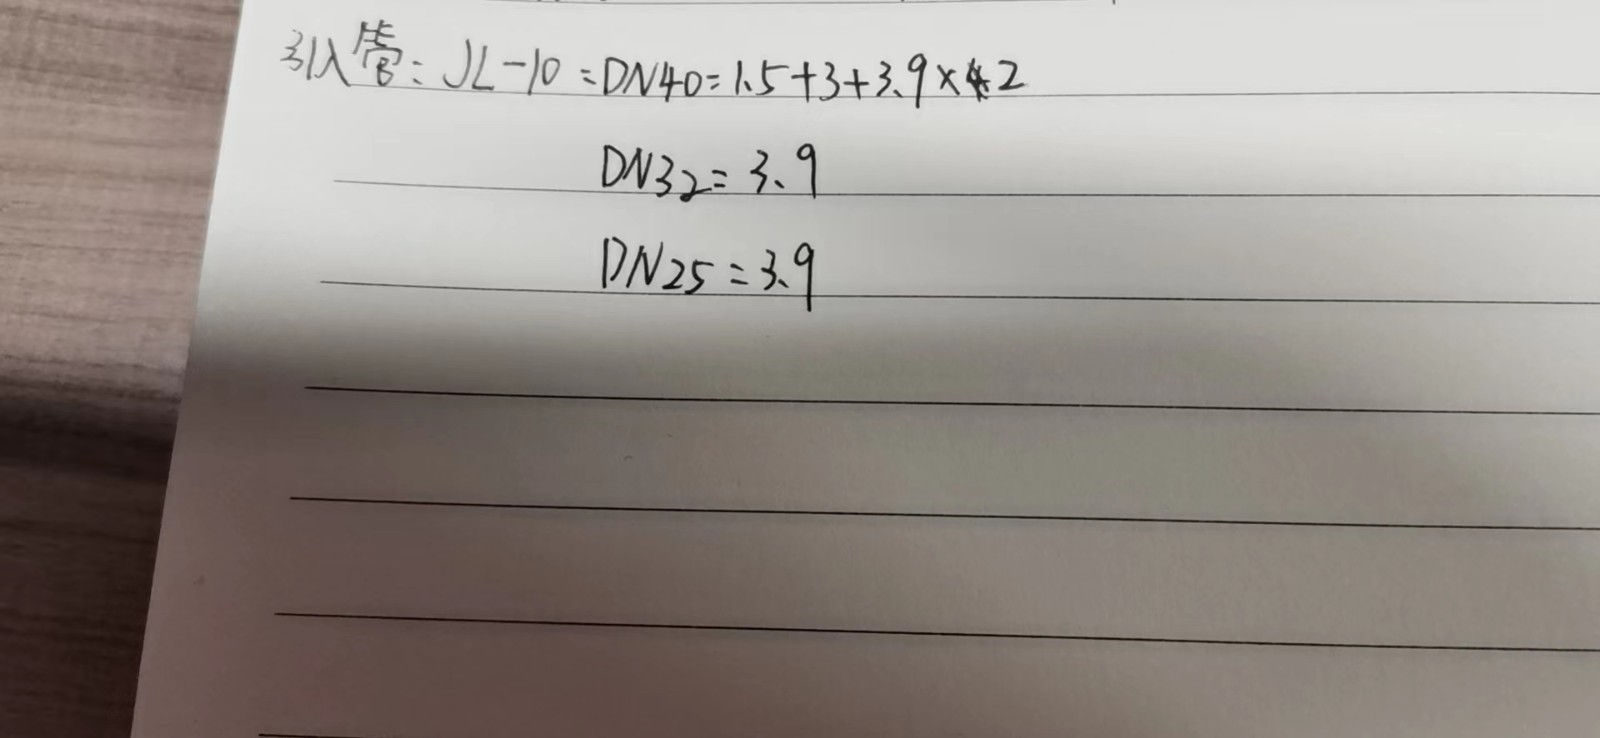 引入管：JL-10=DN40=1.5+3+3.9×2
DN32=3.9
DN25=3.9